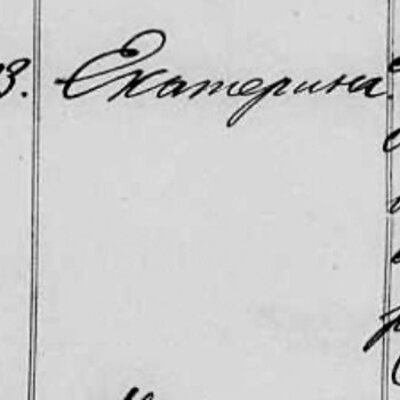 3. Екатерина.